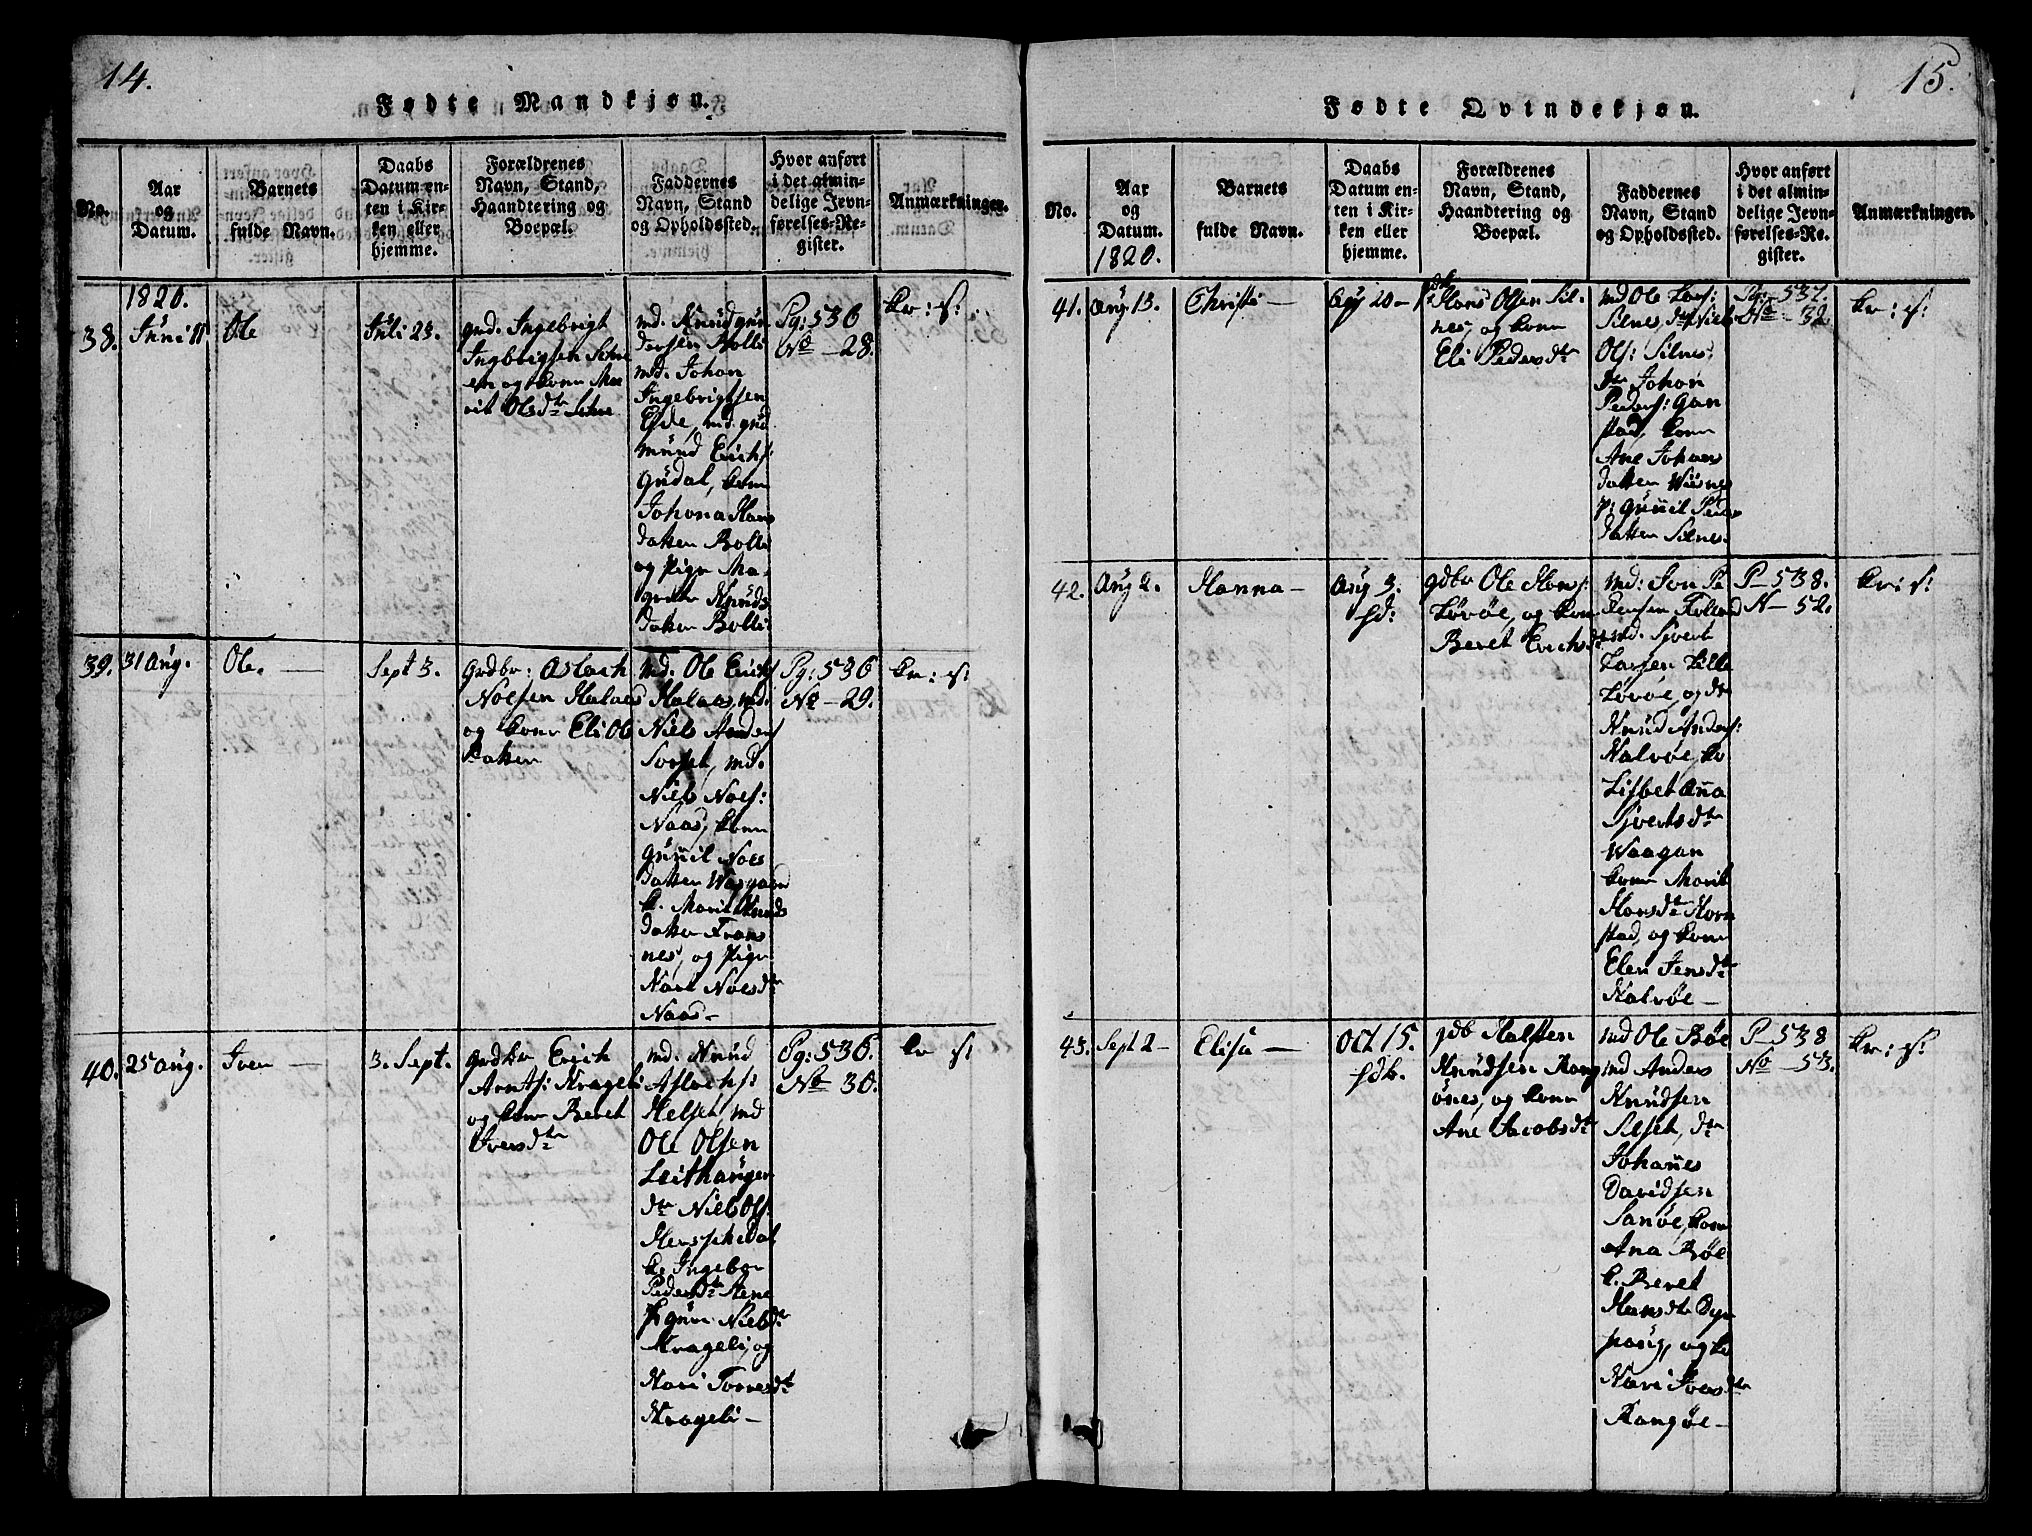 14.
Fødte Mandkjøn.
No.
Aar
og
Datum.
Barnets
fulde Navn.
Daabs
Datum en-
ten i Kir-
ken eller
hjemme.
Forældrenes
Navn, Stand,
Haandtering og
Boepæl.
Faddernes
Navn, Stand
og Opholdssted.
Hvor anført
i det almin-
delige Jevn-
førelses-Re-
gister.
Anmærkninger.
1820.
38.
Juni 11
Ole
Juli 23.
gmd. Ingebrigt
Ingbrigtsen
en og kone Ma
rit Olsdtr
md. Knud Gun
dersen Bolli
md. Johan
Ingebrigtsen
Eide, md. Gud
mund Erichs:
Gudal, kone
Johona Hans
datter Bolli
og Pige Ma-
grete Knuds
datter Bolli
Pg: 536
No - 28.
kr: s:
39.
31 Aug.
Ole. —
Sept 3.
grdbr: Aslach
Noesen Halaas
og kone Eli Ols
datter
md. Ole Erichs
Halaas, md.
Niels Anders
Sorset, md.
Niels Noes:
Naas, kone
Gunil Noes
datter Waagaard
k. Marit Knuds
datter Frans
nes, og Pige
Kari Noesdtr
Naas—
Pg: 536
No - 29.
kr: s:
40.
25 Aug.
Iver —
3. Sept.
grdbr Erich
Arnts: Krageli
og kone Beret
Iversdtr
md. Knud
Aslachs:
Helset, md
Ole Olsen
Leithauger
dr Niels Ols.
Hensschedal
k. Ingebor
Pedersdtr
P. Guru Nielsdtr
Krageli, og
Kari Torresdtr
Krageli—
Pg: 536.
No 30.
kr s:
15.
Fødte Qvindekjøn.
No.
Aar
og
Datum.
1820.
Barnets
fulde Navn.
Daabs
Datum en-
ten i Kir-
ken eller
hjemme.
Forældrenes
Navn, Stand,
Haandtering og
Boepæl.
Faddernes
Navn, Stand
og Opholdssted.
Hvor anført
i det almin-
delige Jevn-
førelses-Re-
gister.
Anmærkninger.
41.
Aug. 13.
Christi —
Aug 20 —
Hans Olsen Sil-
nes, og kone
Eli Pedersdtr
md Ole Lars:
Silnes, dr Niels
Ols: Silnes,
dr Johan
Peders: Gan
stad, kone
Ane Johans
datter Wiisnes
p: Gunil Peders
datter Silnes.
Pg: - 537.
No - 32
kr: s:
42.
Aug 2.
Hanna —
Aug 3.
hd:
gdbr Ole Hans:
Lorøe, og kone
Beret Erichsdtr
md: Jon Pe
dersen Folland
md. Sjvert
Larsen Lille
Lorøe, og dr
Knud Anders:
Kalvøe, ko
Lisbet Anna
Sjvertsdtr
Waagan
kone Marit
Hansdtr Horn
stad, og kone
Elen Jensdtr
Kalvøe —
P - 538.
N - 52.
kr: s:
43.
Sept 2 —
Elisa —
Oct 15.
hdb.
gdb Halsten
Knudsen Rang
ønes, og kone
Ane Jacobsdtr
md Ole Bøe
md Anders
Knudsen
Silset, dr
Johanes
Davidsen
Sanøe, kone
Ana Bøe
k. Beret
Hansdtr Dyr
houg, og ko
Kari Ivarsdtr
Rangøe —
P - 538
No - 53.
kr: s: